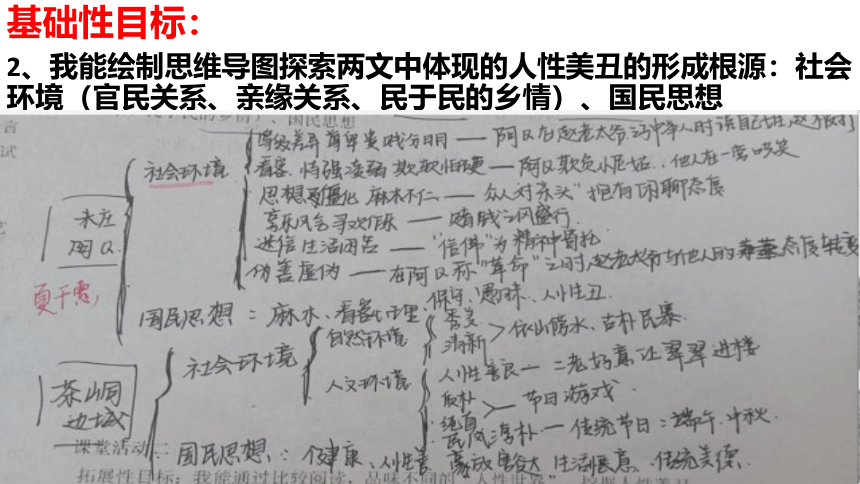 基础性目标：
2、我能绘制思维导图探索两文中体现的人性美丑的形成根源：社会
环境（官民关系、亲缘关系、民于民的乡情）、国民思想
国民思想
言
试
未庄
阿Q
社会环境
等级差异 尊卑贵贱分明 — 阿Q在赵老太爷
看客 恃强凌弱 欺软怕硬 — 阿Q欺负小尼姑、他人在一旁哄笑
思想僵化 麻木不仁 — 众人对杀头 抱有闲聊态度
享乐风气 寻欢作乐 — 赌钱之风盛行
迷信 生活困苦 — "信佛"为精神寄托
伪善虚伪 — 在阿Q称"革命"之时，赵老太爷与他人的态度转变
国民思想：麻木、看客心理、保守、愚昧、人性丑
夏干雯，
茶山同
边城
社会环境
自然环境
秀美
清新
依山傍水、古朴民寨
人文环境
人性善良 — 二老妈真让翠翠进楼
反朴
纯真
节日游戏
民风淳朴 — 传统节日：端午、中秋
国民思想：健康、人性善、豪放豁达 生活惬意、传统美德
课堂活动二
拓展性目标：我能通过比较阅读，品味不同的"人性世界"，挖掘人性美丑